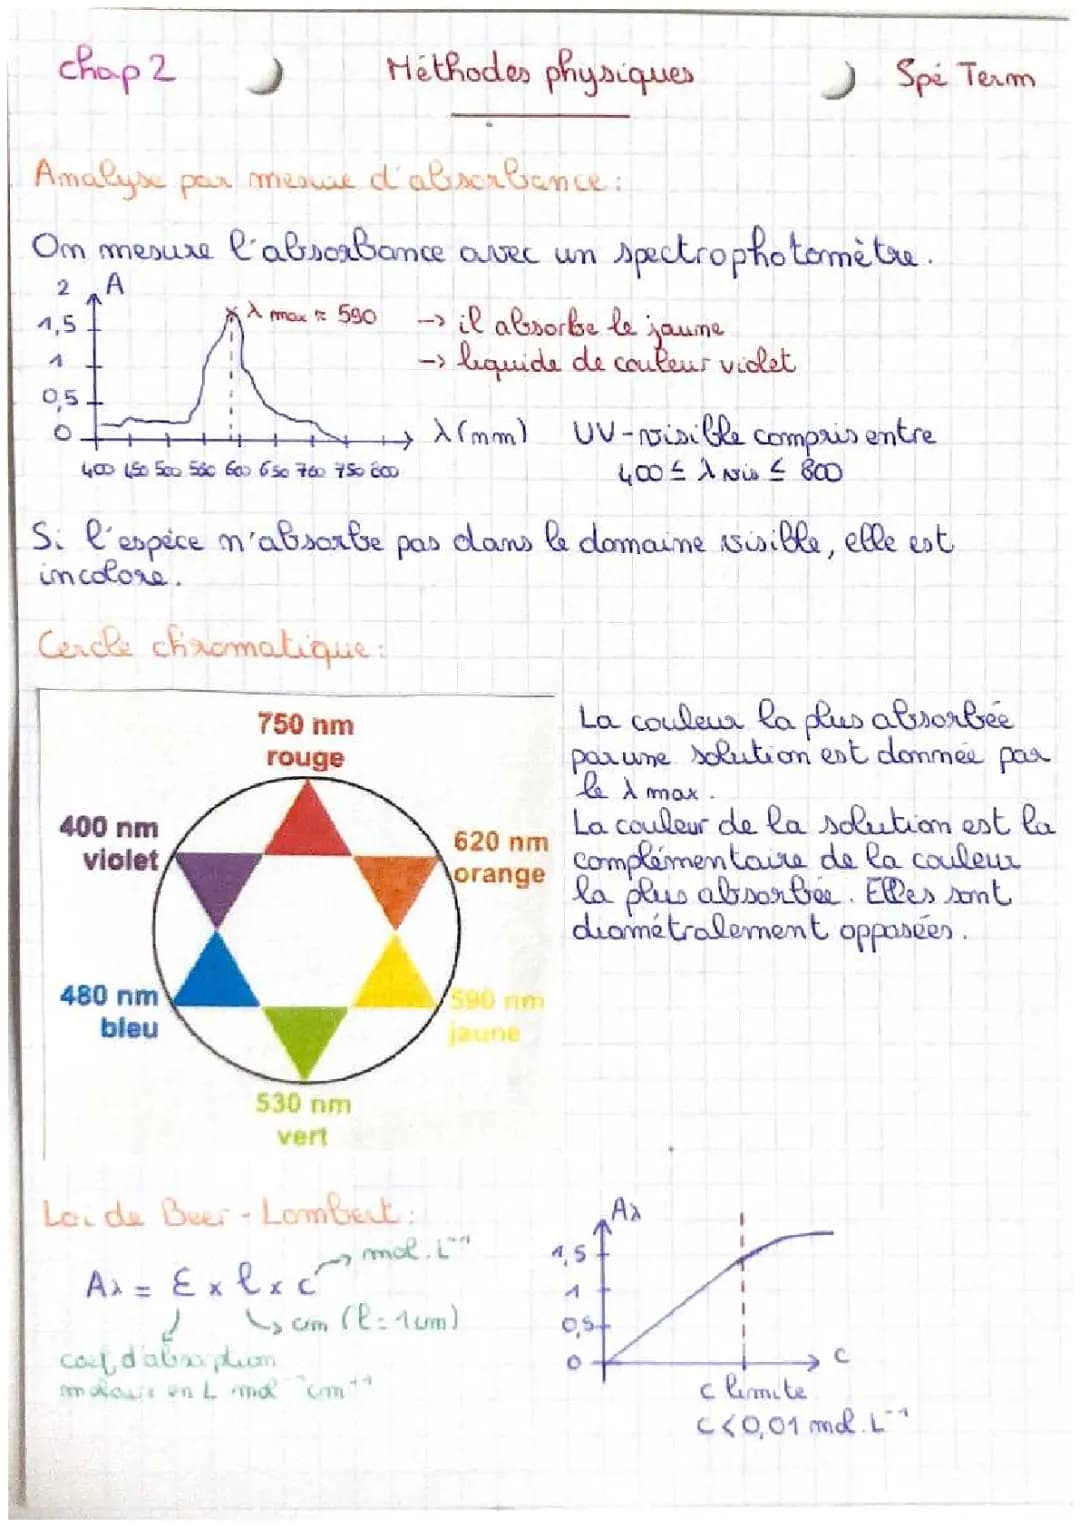 chap 2 Méthodes physiques Spé Term
Analyse par mesure d'absorbance :
On mesure l'absorbance avec un spectrophotomètre.
2 A
1,5
1
0,5
0
λ max ≈ 590
→ il absorbe le jaune
→ liquide de couleur violet
λ(nm)
400 450 500 550 600 650 700 750 800
UV-visible compris entre
400 ≤ λ vis ≤ 800
Si l'espèce n'absorbe pas dans le domaine visible, elle est
incolore.
Cercle chromatique :
750 nm
rouge
400 nm
violet
620 nm
orange
480 nm
bleu
590 nm
jaune
530 nm
vert
La couleur la plus absorbée
par une solution est donnée par
le λ max.
La couleur de la solution est la
complémentaire de la couleur
la plus absorbée. Elles sont
diamétralement opposées.
Loi de Beer-Lambert :
Aλ = Ɛ x l x c
→ mol.L⁻¹
↳ cm (l = 1cm)
coef d'absorption
molaire en L mol⁻¹ cm⁻¹
Aλ
1,5
1
0,5
0
c
c limite
C<0,01 mol.L⁻¹